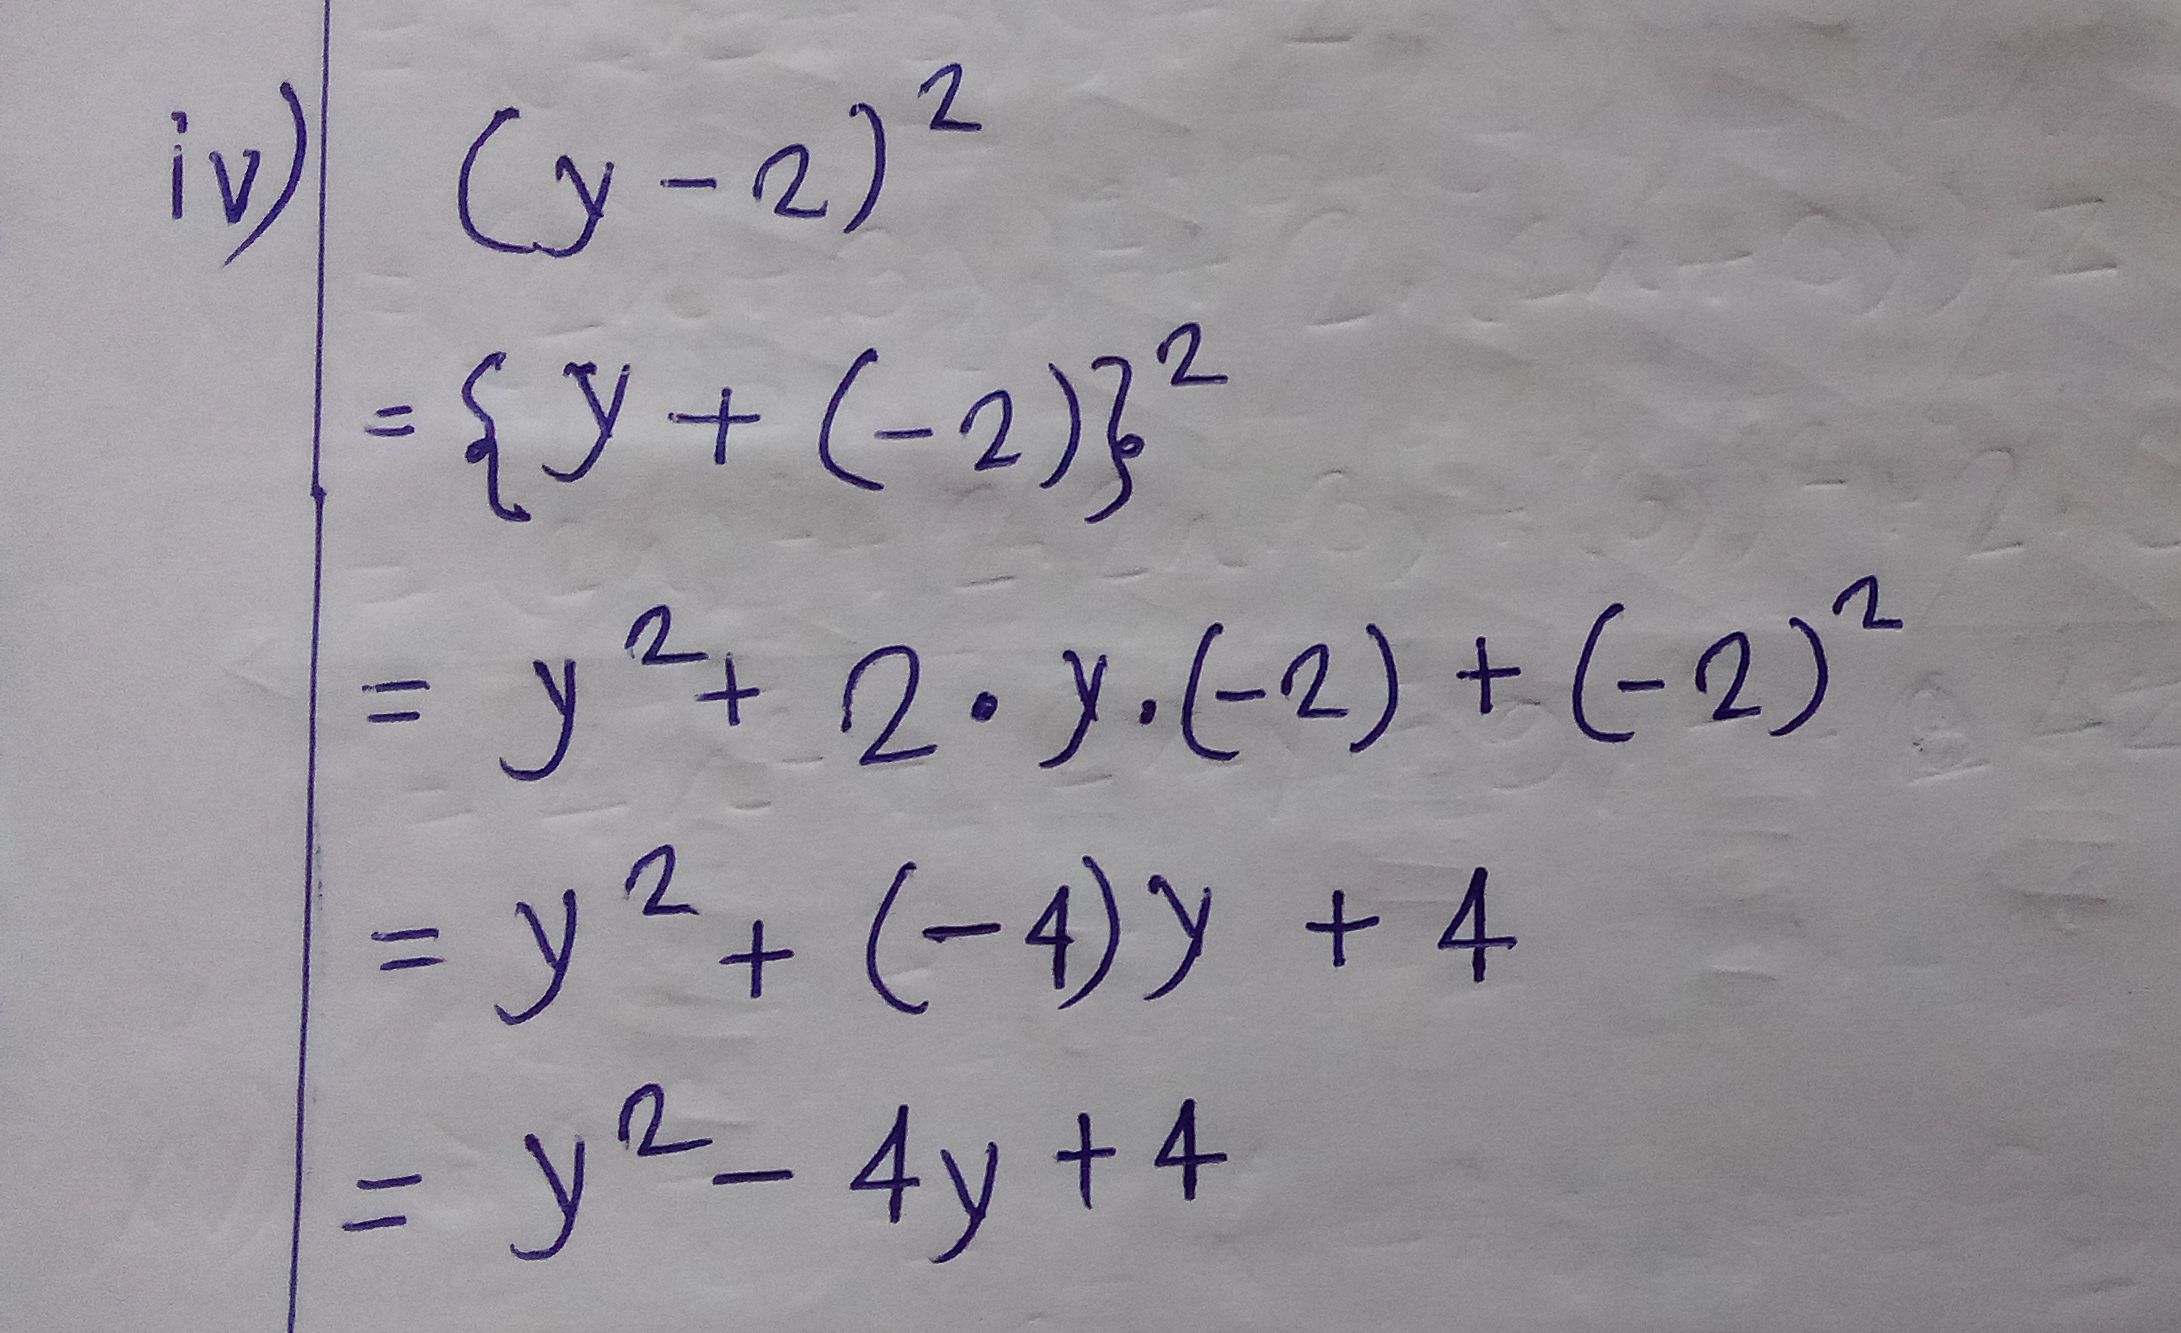 iv) (y - 2)²
= {y + (-2)}²
= y² + 2 · y · (-2) + (-2)²
= y² + (-4) y + 4
= y² - 4y + 4